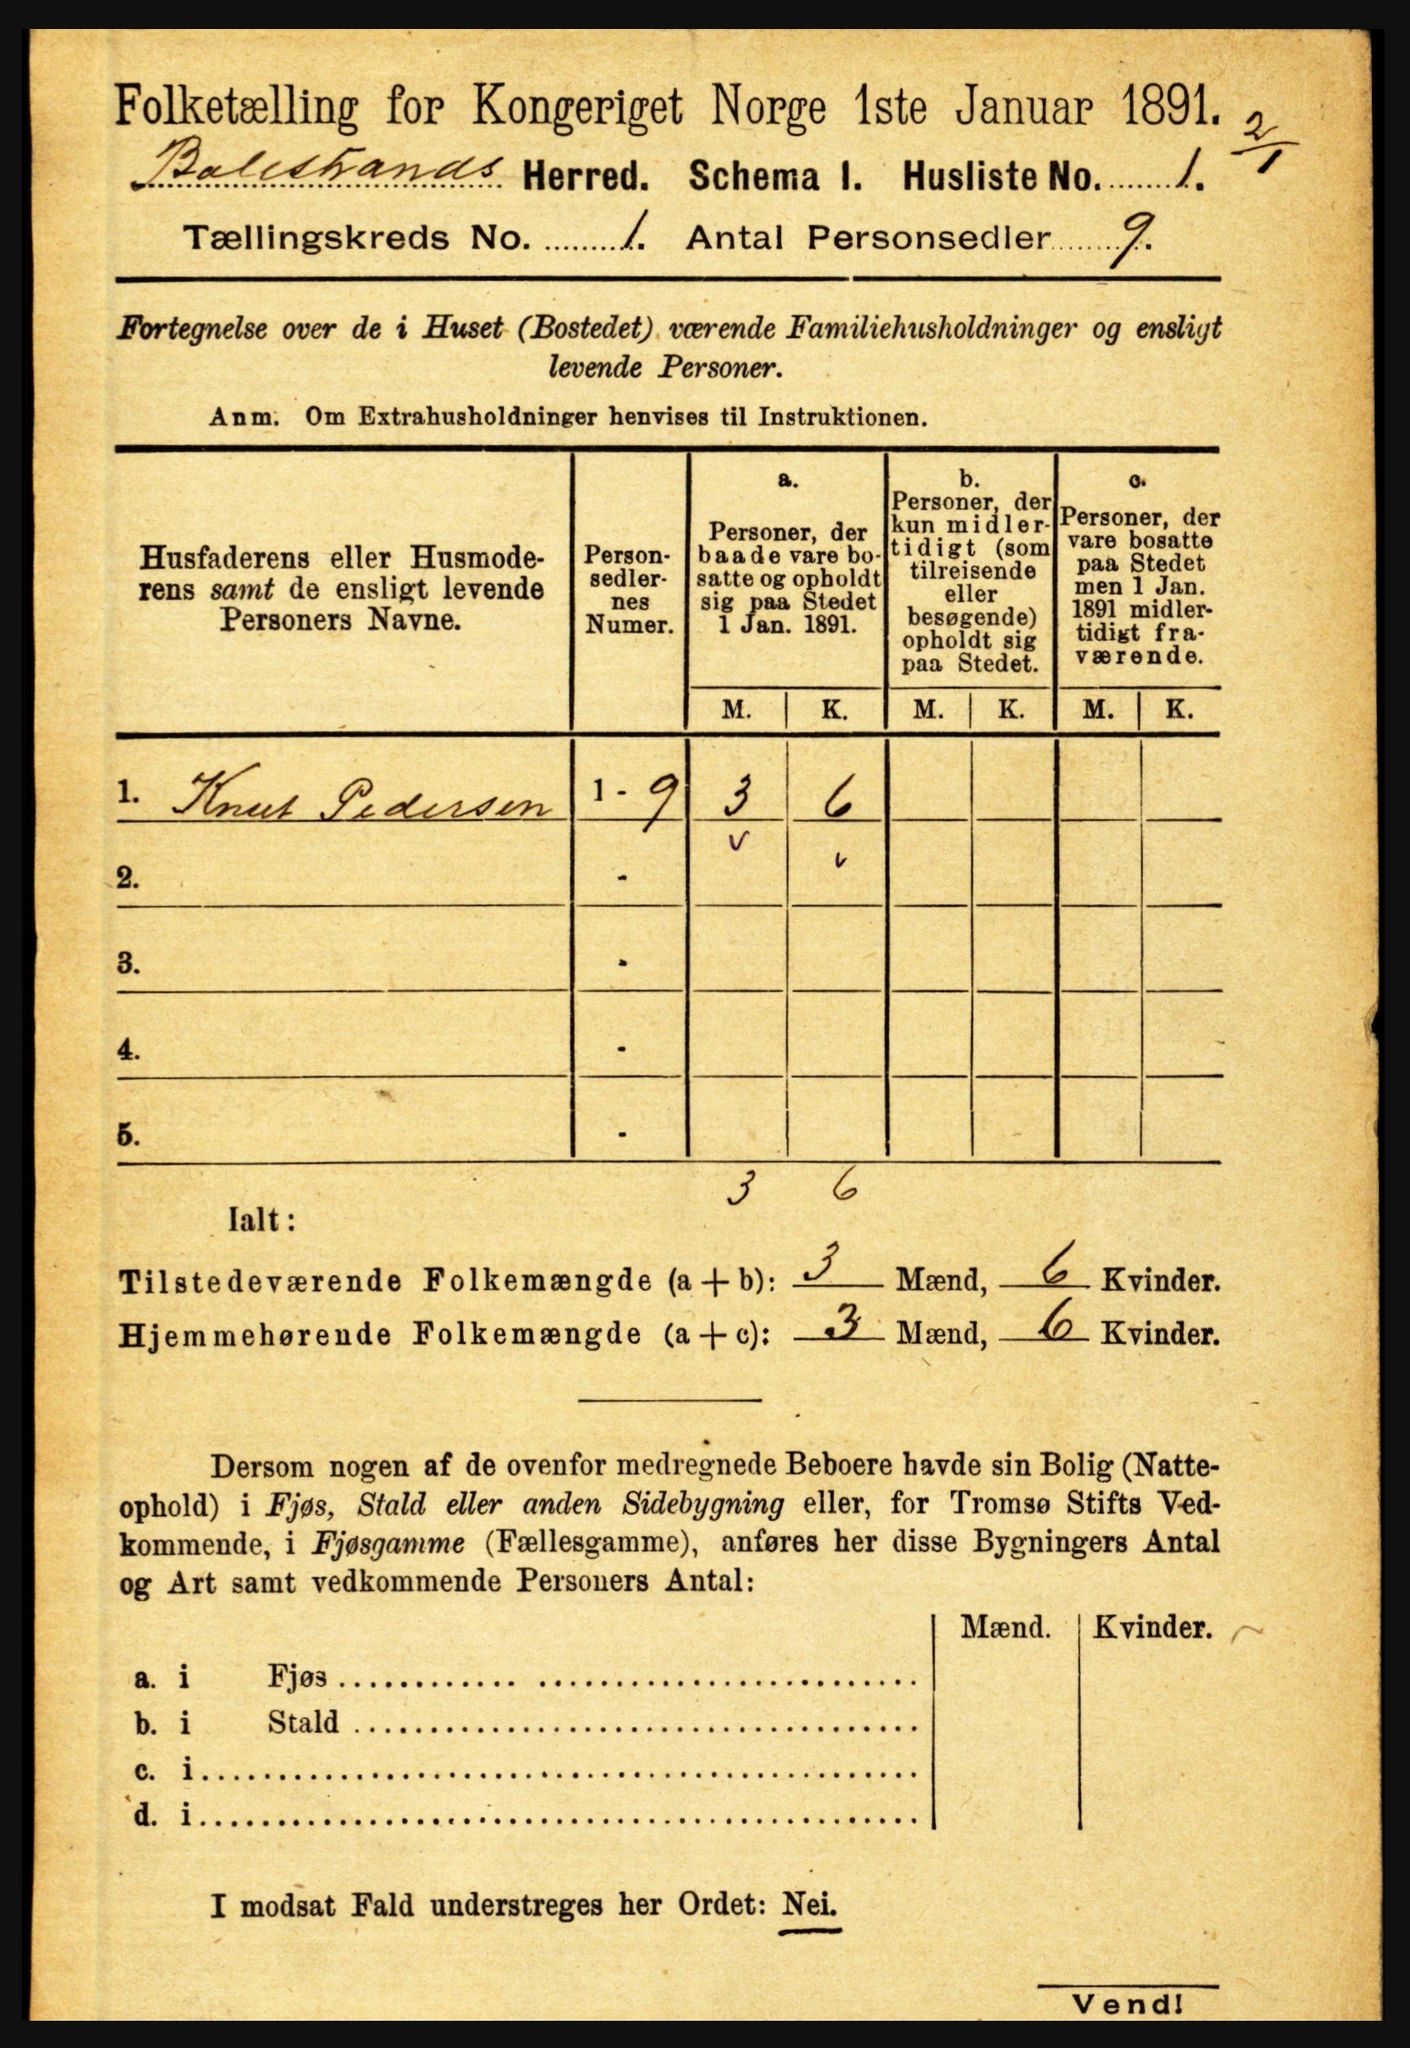 Folketælling for Kongeriget Norge 1ste Januar 1891.
2/1
Balestrands Herred. Schema 1. Husliste No. 1.
Tællingskreds No. 1. Antal Personsedler 9.
Fortegnelse over de i Huset (Bostedet) værende Familiehusholdninger og ensligt
levende Personer.
Anm. Om Extrahusholdninger henvises til Instruktionen.
Husfaderens eller Husmode-
rens samt de ensligt levende
Personers Navne.
Person-
sedler-
nes
Numer.
a.
Personer, der
baade vare bo-
satte og opholdt
sig paa Stedet
1 Jan. 1891.
b.
Personer, der
kun midler-
tidigt (som
tilreisende
eller
besøgende)
opholdt sig
paa Stedet.
c.
Personer, der
vare bosatte
paa Stedet
men 1 Jan.
1891 midler-
tidigt fra-
værende.
M. K. M. K. M. K.
1. Knut Pedersen 1 - 9 3 6
v v
2. -
3. -
4. -
5. -
3 6
Ialt:
Tilstedeværende Folkemængde (a + b): 3 Mænd, 6 Kvinder.
Hjemmehørende Folkemængde (a + c): 3 Mænd, 6 Kvinder.
Dersom nogen af de ovenfor medregnede Beboere havde sin Bolig (Natte-
ophold) i Fjøs, Stald eller anden Sidebygning eller, for Tromsø Stifts Ved-
kommende, i Fjøsgamme (Fællesgamme), anføres her disse Bygningers Antal
og Art samt vedkommende Personers Antal:
Mænd. Kvinder.
a. i Fjøs
b. i Stald
c. i
d. i
I modsat Fald understreges her Ordet: Nei.
Vend!